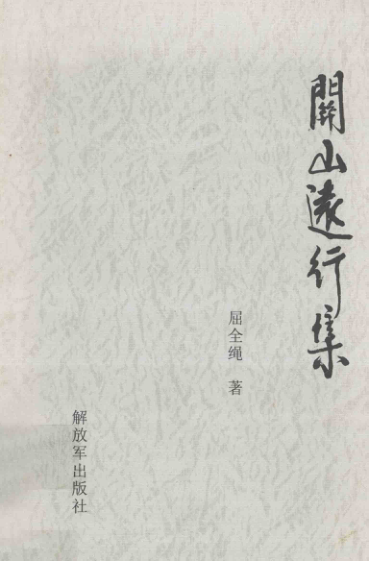 關山遠行集
屈全绳 著
解放军出版社